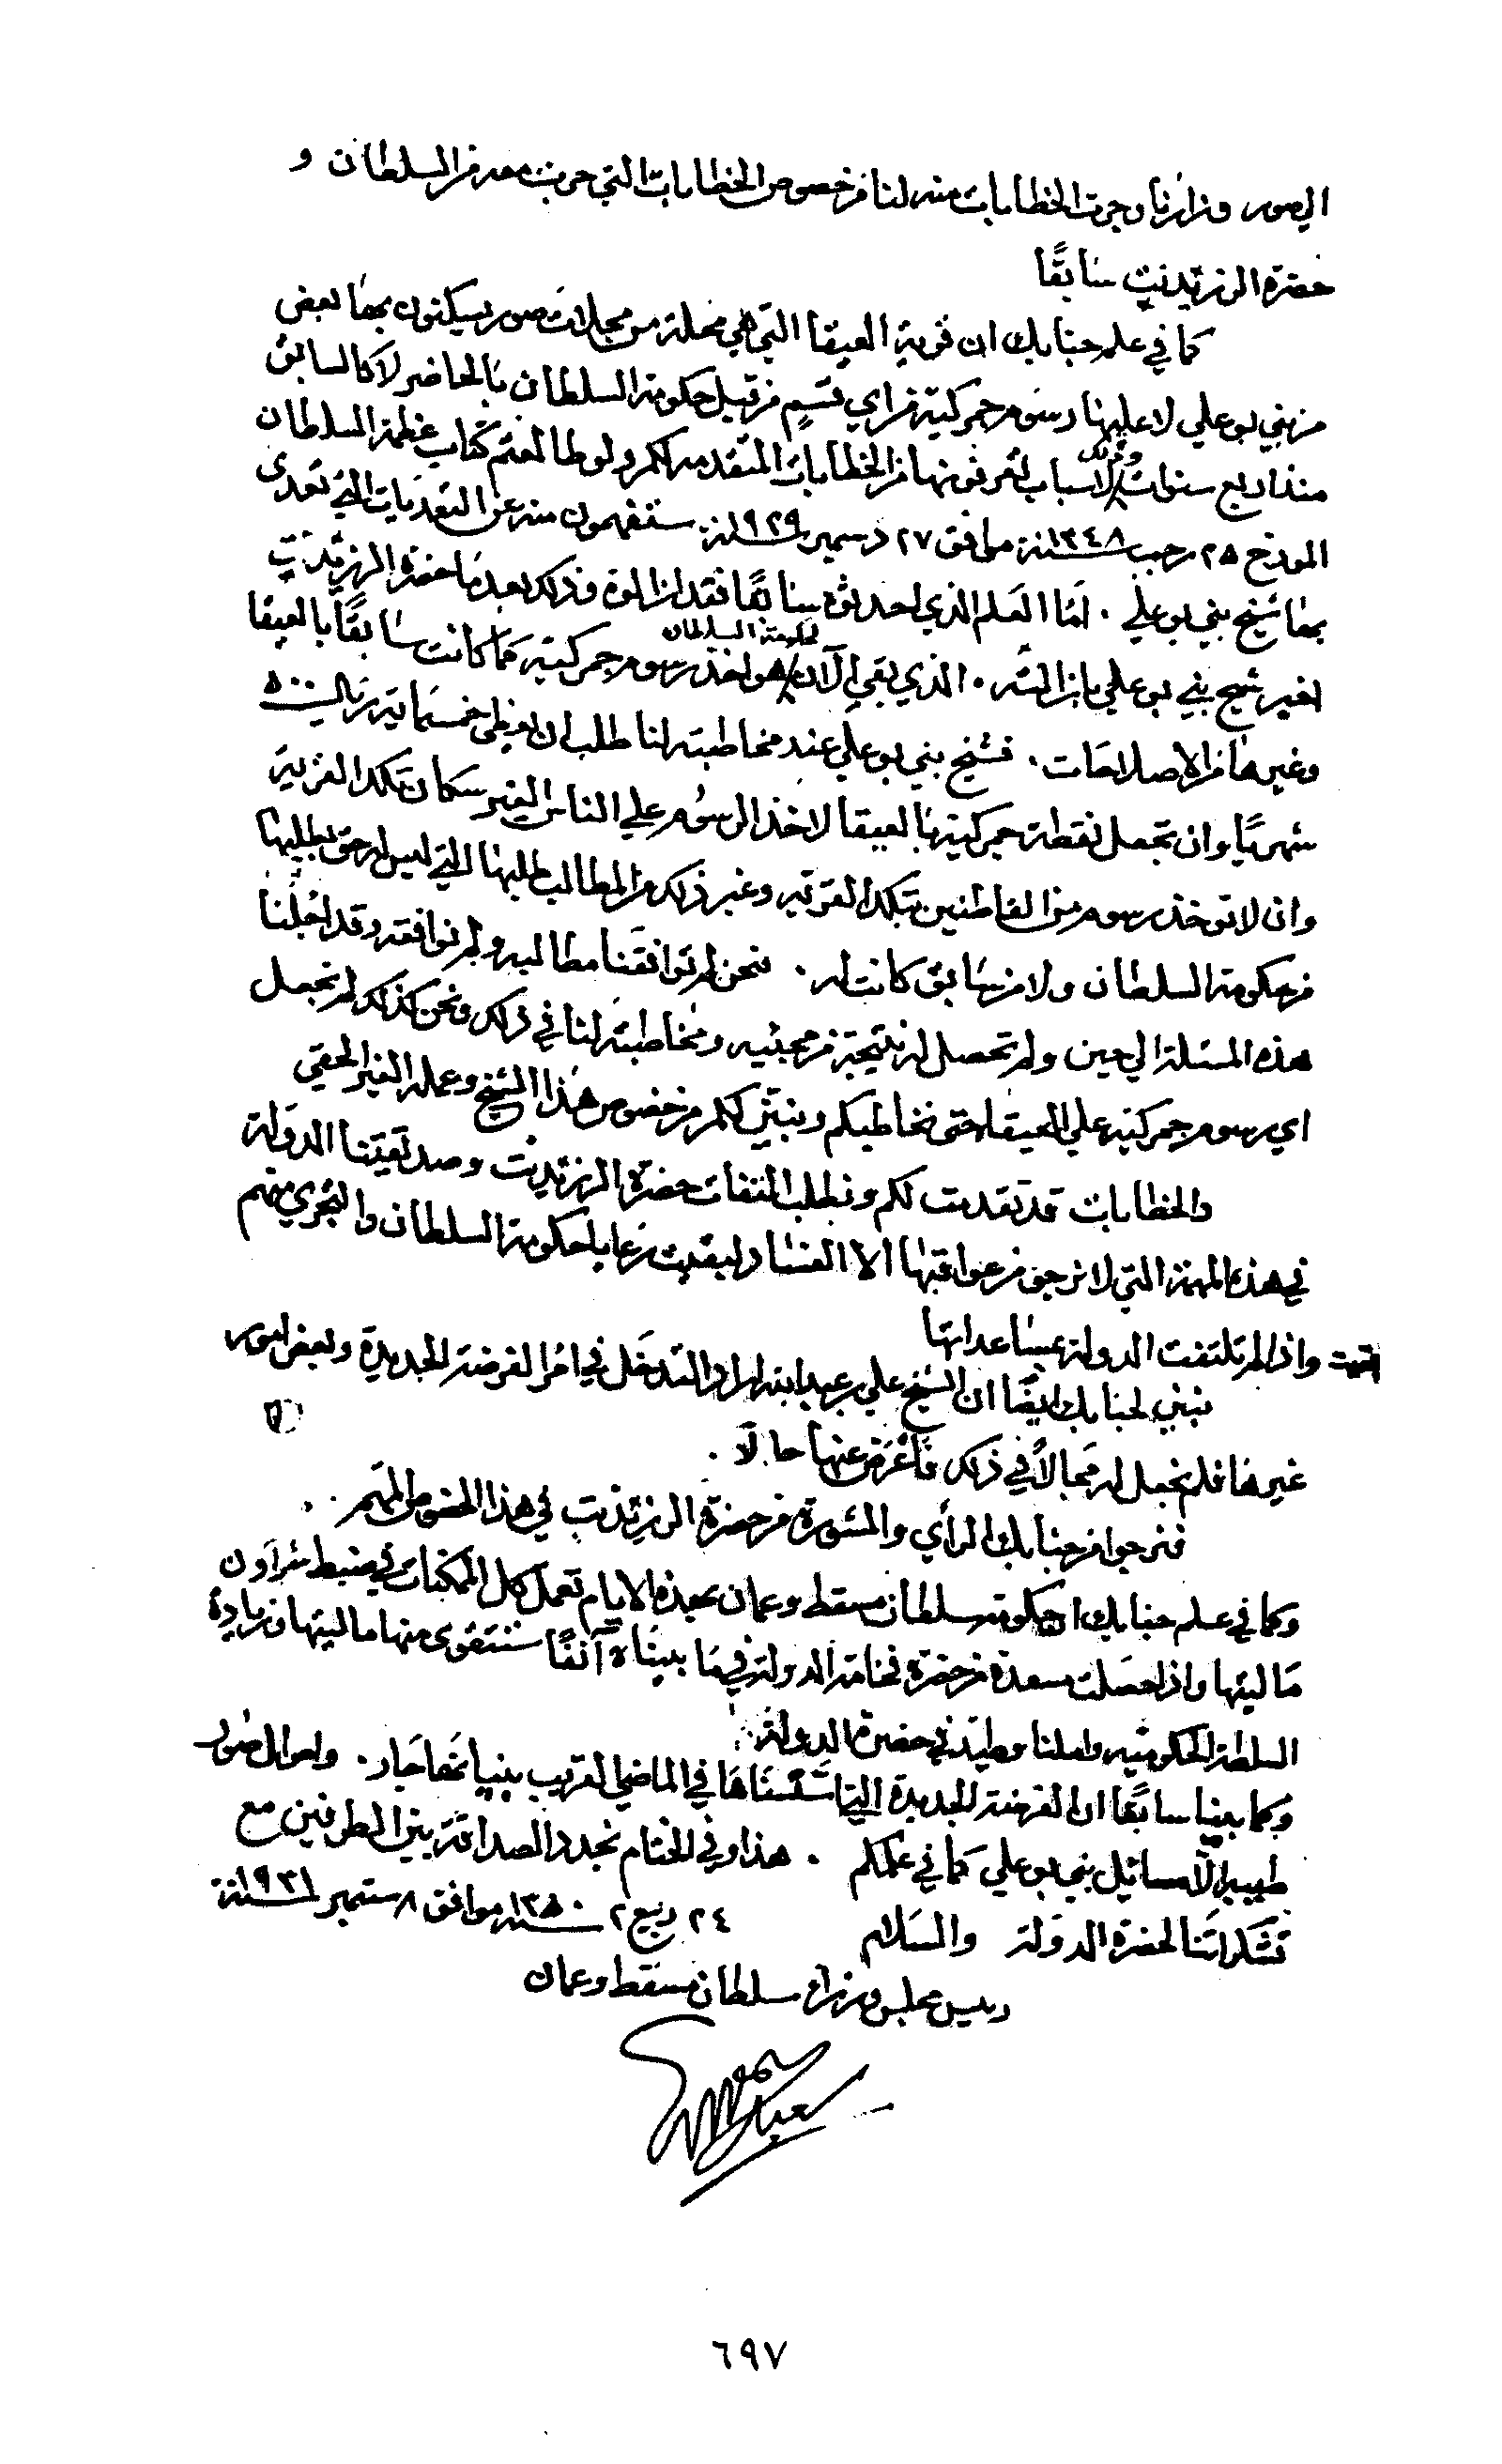 الي صور وزارنا وجرت الخطابات منه لنا من خصوص الخطابات التي جرت معه من السلطان و
حضرة الرزيدنت سابقًا
كما في علم جنابك ان قرية العيقا التي هي محلة من محلات صور يسكنون بها بعض
من بني بوعلي لا عليها رسوم جمركية من اي قسمٍ من قبل حكومة السلطان بالحاضر لا كالسابق
منذ اربع سنوات وذلك لاسباب تعرفونها من الخطابات المتقدمه لكم ولو طالعتم كتاب عظمة السلطان
المورخ ٢٥ رجب سنة ١٣٤٨ موافق ٢٧ دسمبر سنة ١٩٢٩ ستفهمون منه عن التعديات التي تعدى
بها شيخ بني بوعلي . امّا العلم الذي احدثوه سابقًا فقد ازالوه وذلك بعد ما حضرة الرزيدنت
اخبر شيخ بني بوعلي بازالته . الذي بقي الآن هو اخذ رسوم جمركية كما كانت سابقًا بالعيقا
لحكومة السلطان
وغيرها من الاصلاحات . فشيخ بني بوعلي عند مخاطبته لنا طلب ان يعطى خمسماية ريال ٥٠٠
شهريًا وان تجعل نقطة جمركية بالعيقا لاخذ الرسوم علي الناس الغير سكان تلك القرية
وان لا توخذ رسوم من القاطنين بتلك القرية وغير ذلك من المطالب طلبها التي ليس له حق بطلبها
من حكومة السلطان ولا من سابق كانت له . نحن لم توافقنا مطالبه ولم نوافقه وقد اجلنا
هذه المسئلة الي حين ولم تحصل له نتيجة من مجئيه ومخاطبته لنا في ذلك ونحن كذلك لم نجعل
اي رسوم جمركية علي العيقا حتى نخاطبكم ونبيّن لكم من خصوص هذا الشيخ وعمله الغير الحقي
والخطابات قد تقدمت لكم ونطلب التفات حضرة الرزيدنت وصديقتنا الدولة
في هذه المهمة التي لا نرجو من عواقبها الا الفساد لبقيت رعايا حكومة السلطان والتجري منهم
واذا لم تلتفت الدولة بمساعداتها
نبيّن لجنابك ايضًا ان الشيخ علي بن عبدالله اراد التدخل في امر الفرضة الجديدة وبعض امور
غيرها فلم نجعل له مجالاً في ذلك فاعرض عنها حالا .
فنرجوا من جنابك الرأي والمشورة من حضرة الرزيدنت في هذا الخصوص المهم .
وكما في علم جنابك ان حكومة سلطان مسقط وعمان بهذه الايام تعمل كل الممكنات في ضبط شراون
ماليتها واذا حصلت مسعدة من حضرة فخامة الدولة فيما بيناه آنفًا ستتقوى منها ماليتها وزيادة
السلطة الحكومتيه واملنا وطيد في حضرة الدولة
وكما بينا سابقًا ان الفرضة الجديدة التي اسّسناها في الماضي القريب بنيانها جار . واحوال صور
طيبه الا مسائل بني بوعلي كما في علمكم . هذا وفي الختام نجدد الصداقة بين الطرفين مع
تشكراتنا لحضرة الدولة والسلام ٢٤ ربيع ٢ سنة ١٣٥٠ موافق ٨ ستمبر سنة ١٩٣١
رئيس مجلس وزراء سلطان مسقط وعمان
٦٩٧